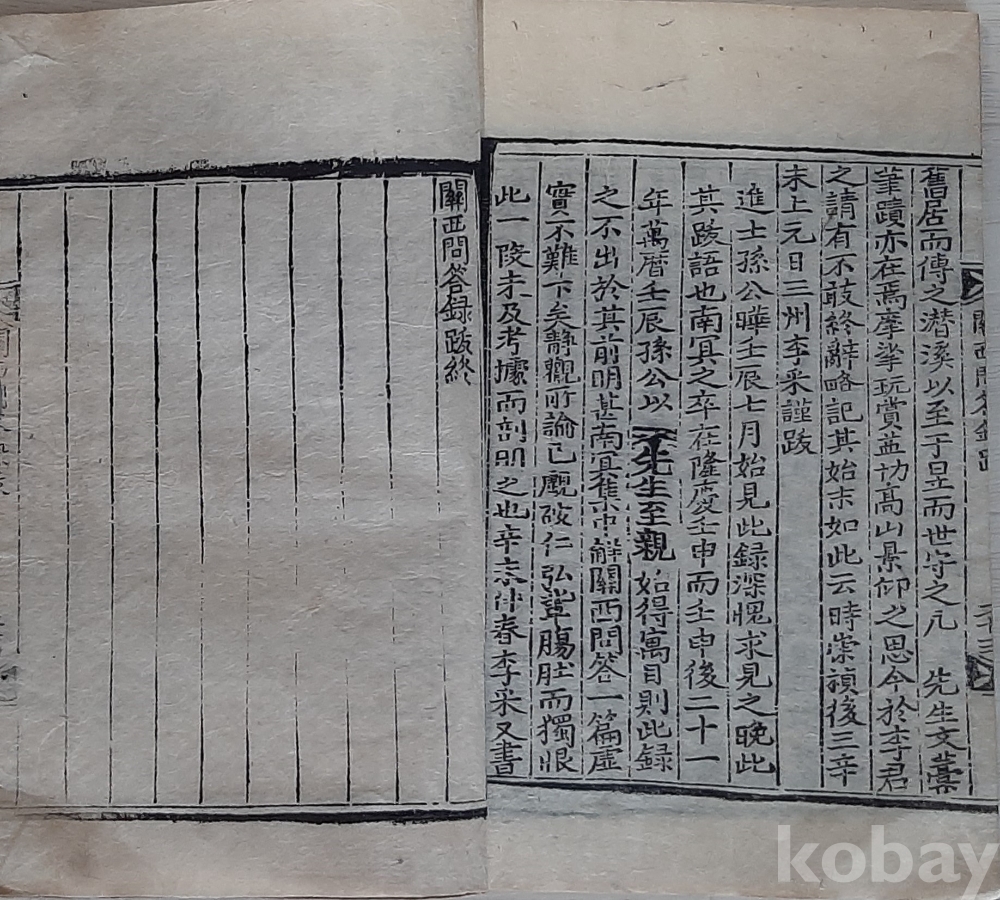 舊居而傳之潛溪以至于昱而世守之凡 先生文藁
筆蹟亦在焉摩挲玩賞益切高山景仰之思今於李君
之請有不敢終辭略記其始末如此云時崇禎後三辛
未上元日三州李采謹跋
進士孫公曄壬辰七月始見此録深愧求見之晩此
其跋語也南冥之卒在隆慶壬申而壬申後二十一
年萬曆壬辰孫公以 先生至親始得寓目則此録
之不出於其前明甚南冥集中解關西問答一篇虛
實不難下矣靜觀所論已覷破仁弘輩膓肚而獨恨
此一段未及考據而剖明之也辛未仲春李采又書
關西問答録跋終
關西問答録跋
kobay